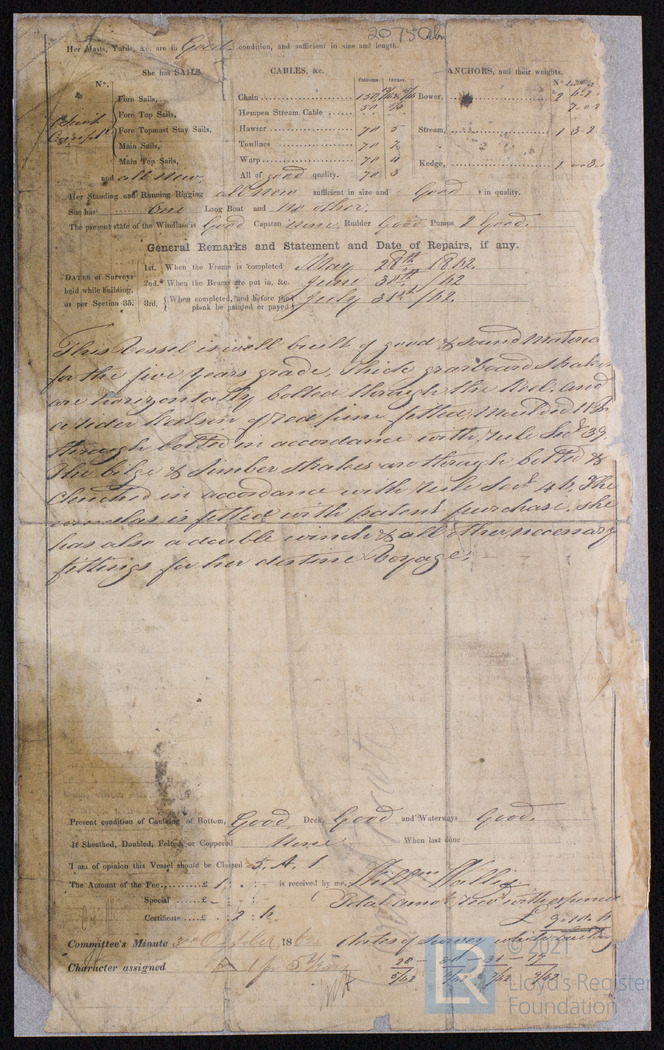 Her Masts, Yards, &c. are in Good condition, and sufficient in size and length.
She has SAILS.
CABLES, &c.
ANCHORS, and their weights.
No.
Fathoms. Inches.
Fore Sails,
Fore Top Sails,
Fore Topmast Stay Sails,
Main Sails,
Main Top Sails,
and all new.
Chain 150
Hempen Stream Cable 50
Hawser 70 5
Towlines 70
Warp 70 4
All of good quality. 70 3
Bower, 2
Stream, 1 3.2
Kedge, 1
Her Standing and Running Rigging all New sufficient in size and Good in quality.
She has One Long Boat and no other.
The present state of the Windlass is Good Capstan none Rudder Good Pumps 2 Good.
General Remarks and Statement and Date of Repairs, if any.
DATES of Surveys held while building, as per Section 35.
1st. When the Frame is completed May 28th 1862
2nd. When the Beams are put in, &c. June 30th /62
3rd. { When completed, and before the plank be painted or payed } July 31st /62.
This Vessel is well built of good & sound Materia
for the five years grade, thick garboard strakes
are horizontally bolted through the Keel. and
a rider Kelson of red pine fitted,
through bolted in accordance with rule Sec. 39.
The bilge & limber strakes are through bolted &
Clenched in accordance with rule Sect. 46. The
windlas is fitted with patent purchase. she
has also a double winch & all other necessary
fittings for her destine Voyage.
Present condition of Caulking of Bottom, Good Deck, Good and Waterways Good.
If Sheathed, Doubled, Felted, or Coppered None When last done
I am of opinion this Vessel should be Classed 5. A. 1
The Amount of the Fee £ 1 : - : - is received by me,
Special £ - : - :
Certificate £ - : 2 : 6
Total amot. with expences
£
Committee's Minute October 186
dates of survey
Character assigned
28 - 30 - 31 -
5/62
© 2021
LR
Lloyd's Register
Foundation